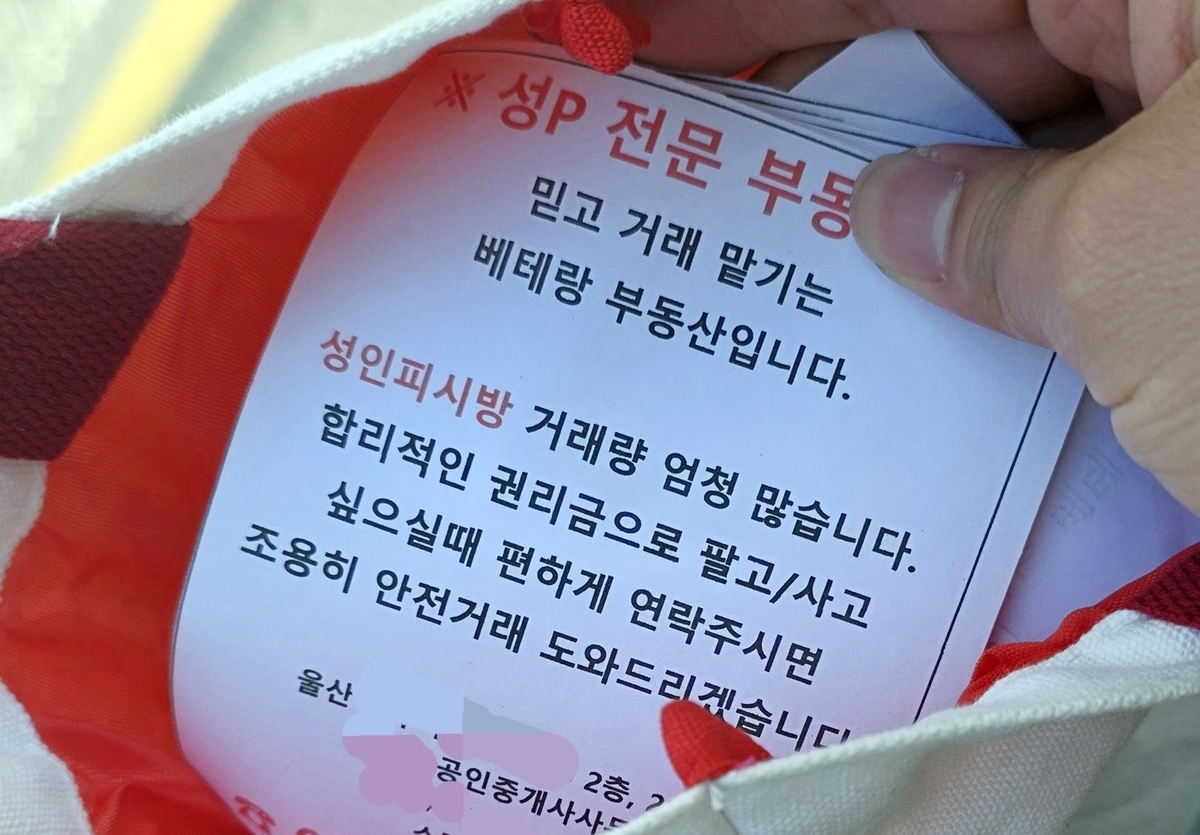 ※ 성P 전문 부동
믿고 거래 맡기는
베테랑 부동산입니다.
성인피시방 거래량 엄청 많습니다.
합리적인 권리금으로 팔고/사고
싶으실때 편하게 연락주시면
조용히 안전거래 도와드리겠습니다
울산
2층, 2
공인중개사사
☎